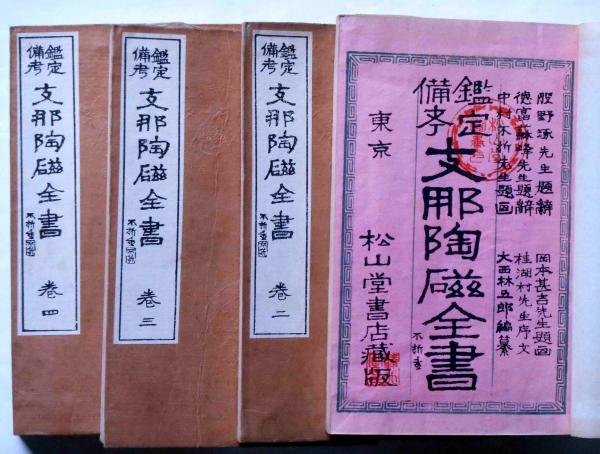 股野琢先生題辭
德富蘇峰先生題辭
中村不折先生題画
岡本甚吉先生題画
桂湖村先生序文
大西林五郎編纂
鑑定
備考
支那陶磁全書
不折書
東京
松山堂書店藏版
鑑定
備考
支那陶磁全書
不折書
卷二
鑑定
備考
支那陶磁全書
不折書
卷三
鑑定
備考
支那陶磁全書
不折書
卷四